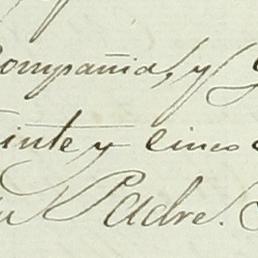 Compañia, y
einte y cinco
su Padre.